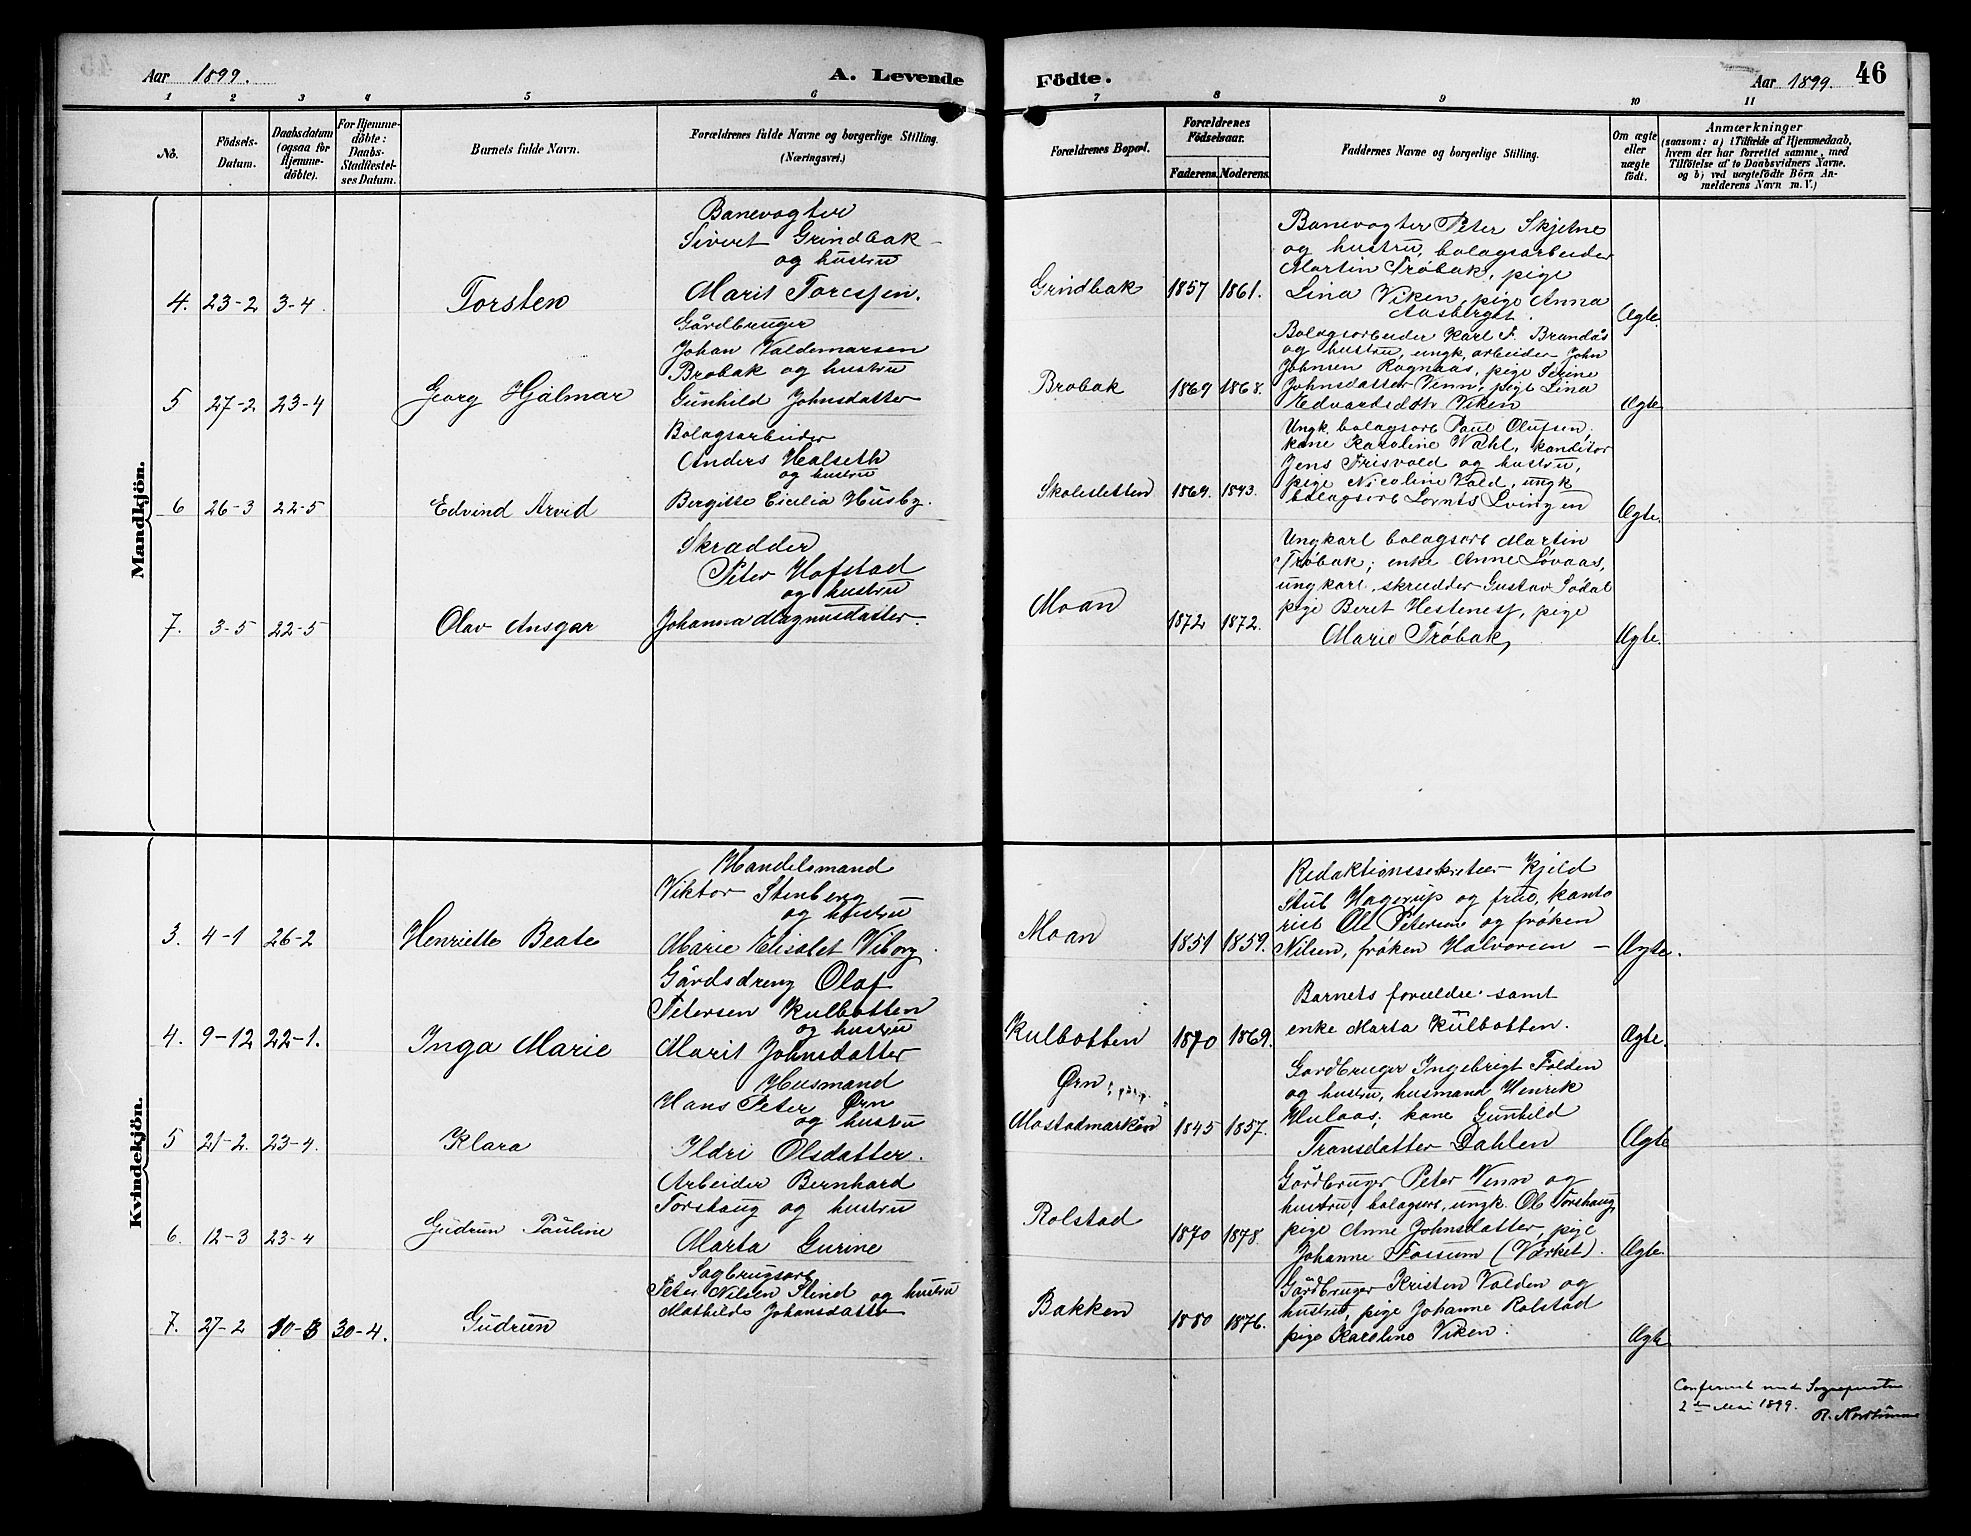 Aar 1899.
A. Levende Födte.
Aar 1899. 46
1 2 3 4 5 6 7 8 9 10 11
No.
Födsels-Datum.
Daabsdatum (ogsaa for Hjemme-döbte).
For Hjemme-döbte: Daabs-Stadfæstel-ses Datum.
Barnets fulde Navn.
Forældrenes fulde Navne og borgerlige Stilling.
(Næringsvei.)
Forældrenes Bopæl.
Forældrenes Födselsaar.
Faderens. Moderens.
Faddernes Navne og borgerlige Stilling.
Om ægte eller uægte födt.
Anmærkninger
(saasom: a) i Tilfælde af Hjemmedaab,
hvem der har forrettet samme, med
Tilföielse af to Daabsvidners Navne.
og b) ved uægtefödte Börn An-
melderens Navn m. V.)
Mandkjön.
4. 23-2 3-4. Torsten
Banevogter
Sivert Grindbak
og hustru
Marit Toresen.
Grindbak 1857 1861.
Banevogter Peter Skjelne
og hustru, bolagsarbeider
Martin Trøbak, pige
Lina Viken, pige Anna
Aasberget.
Ægte.
5 27-2 23-4 Georg Hjalmar
Gårdbruger
Johan Valdemarsen
Brobak og hustru
Gunhild Johnsdatter
Brobak 1869 1868.
Bolagsarbeider Karl P. Brandås
og hustru, ungk. arbeider John
Johnsen Rognaas, pige Serine
Johnsdatter Venn, pige Lina
Edvardsdtr Viken
Ægte
6 26-3 22-5 Edvind Arvid
Bolagsarbeider
Anders Halseth
og hustru
Bergitte Cicilia Husby.
Skoledetten 1864. 1843.
Ungk. bolagsarb Paul Olufsen,
kone Karoline Wahl, konditor
Jens Frisvold og hustru,
pige Nicoline Vold, ungk
bolagsarb Lornts Lvingen
Ægte.
7. 3-5 22-5 Olav Ansgar
Skrædder
Peter Hofstad
og hustru
Johanna Magnusdatter.
Moan 1872 1872.
Ungkarl bolagsarb Martin
Trøbak; enke Anne Løvaas,
ungkarl skrædder Gustav Sødal
pige Beret Hestenesj, pige
Marie Trøbak,
Ægte.
Kvindekjön.
3. 4-1 26-2 Henriette Beate
Handelsmand
Viktor Stenberg
og hustru
Marie Elisabet Viborg.
Moan 1851 1859.
Redaktionssekretær Kjeld
Stub Hagerup og frue, kanto
rist Ole Petersen og frøken
Nilsen, frøken Halvorsen –
Ægte.
4. 9-12 22-1. Inga Marie
Gårdsdreng Olaf
Petersen Kulbotten
og hustru
Marit Johnsdatter
Kulbotten 1870 1869.
Barnets forældre samt
enke Marta Kulbotten.
Ægte.
5 21-2. 23-4. Klara
Husmand
Hans Peter Ørn
og hustru
Ildri Olsdatter.
Ørn
Mostadmarken 1845 1857.
Gardbruger Ingebrigt Folden
og hustru, husmand Henrik
Hulaas, kone Gunhild
Transdatter Dahlen
Ægte
6. 12-3 23-4 Gudrun Pauline
Arbeider Bernhard
Torshaug og hustru
Marta Gurine
Rolstad 1870 1878.
Gårdbruger Peter Venn og
hustru, bolagsarb, ungk. Ole Torshaug,
pige Anne Johnsdatter, pige
Johanne Fossum (Værket).
Ægte
7. 27-2 10-3 30-4. Gudrun
Sagbrugsarb
Peter Nilsen Slind og hustru
Mathilde Johansdatter
Bakken 1880 1876.
Gårdbruger Kristen Volden og
hustru, pige Johanne Rolstad
pige Karoline Viken.
Ægte
Confereret med
2den Mai 1899.